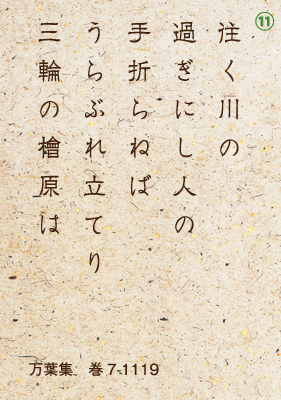 ⑪
往く川の
過ぎにし人の
手折らねば
うらぶれ立てり
三輪の檜原は
万葉集 巻7-1119